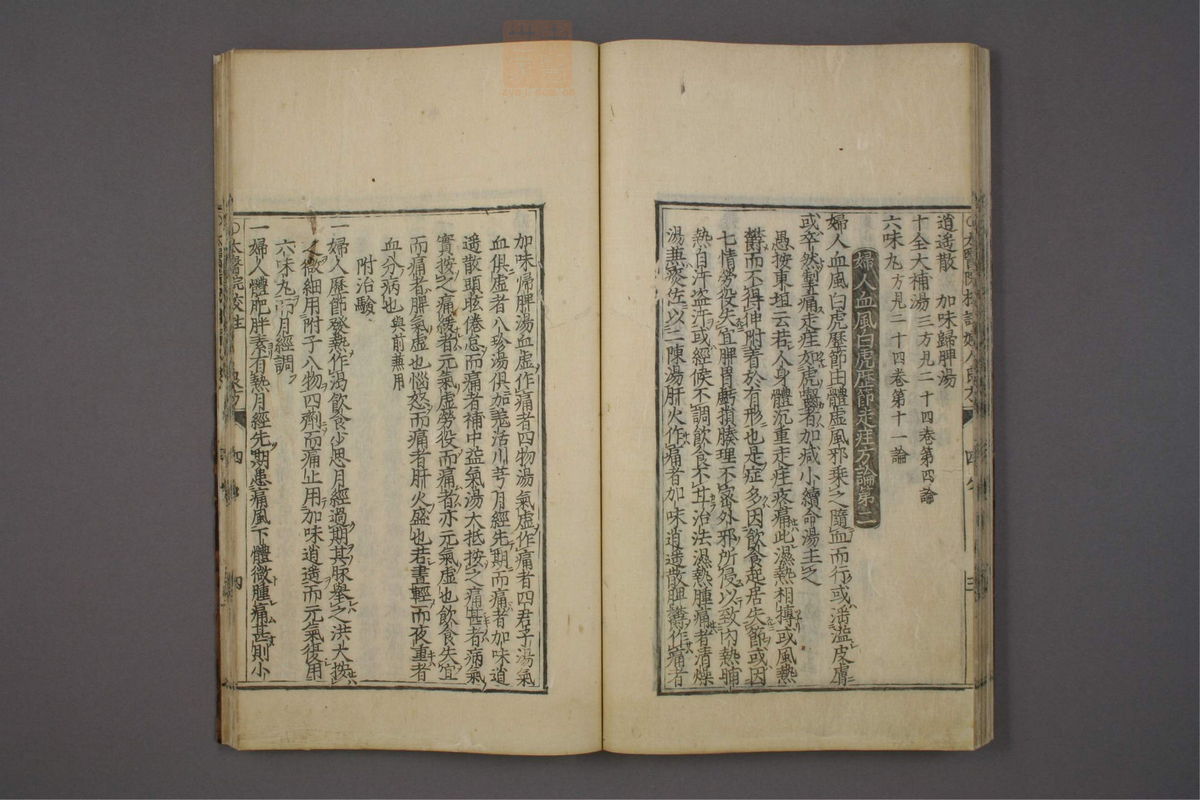 逍遙散 加味歸脾湯
十全大補湯 三方見二十四卷第四論
六味丸 方見二十四卷第十一論
婦人血風白虎歷節走疰方論第三
婦人血風白虎歷節由體虛風邪乘之隨血而行或淫溢皮膚
或卒然掣痛走疰如虎齧者加減小續命湯主之
愚按東垣云若人身體沉重走疰疼痛此濕熱相搏或風熱
鬱而不得伸附著於有形也是症多因飲食起居失節或因
七情勞役失宜脾胃虧損腠理不密外邪所侵以致內熱晡
熱自汗盜汗或經候不調飲食不甘治法濕熱腫痛者清燥
湯兼痰佐以二陳湯肝火作痛者加味逍遙散脾鬱作痛者
加味歸脾湯血虛作痛者四物湯氣虛作痛者四君子湯氣
血俱虛者八珍湯俱加羗活川芎月經先期而痛者加味逍
遙散頭眩倦怠而痛者補中益氣湯大抵按之痛甚者病氣
實按之痛緩者元氣虛勞役而痛者亦元氣虛也飲食失宜
而痛者脾氣虛也惱怒而痛者肝火盛也若晝輕而夜重者
血分病也 與前兼用
附治驗
一婦人歷節發熱作渴飲食少思月經過期其脉舉之洪大按
之微細用附子八物四劑而痛止用加味逍遙而元氣復用
六味丸而月經調
一婦人體肥胖素有熱月經先期患痛風下體微腫痛甚則小
太醫院校註
四